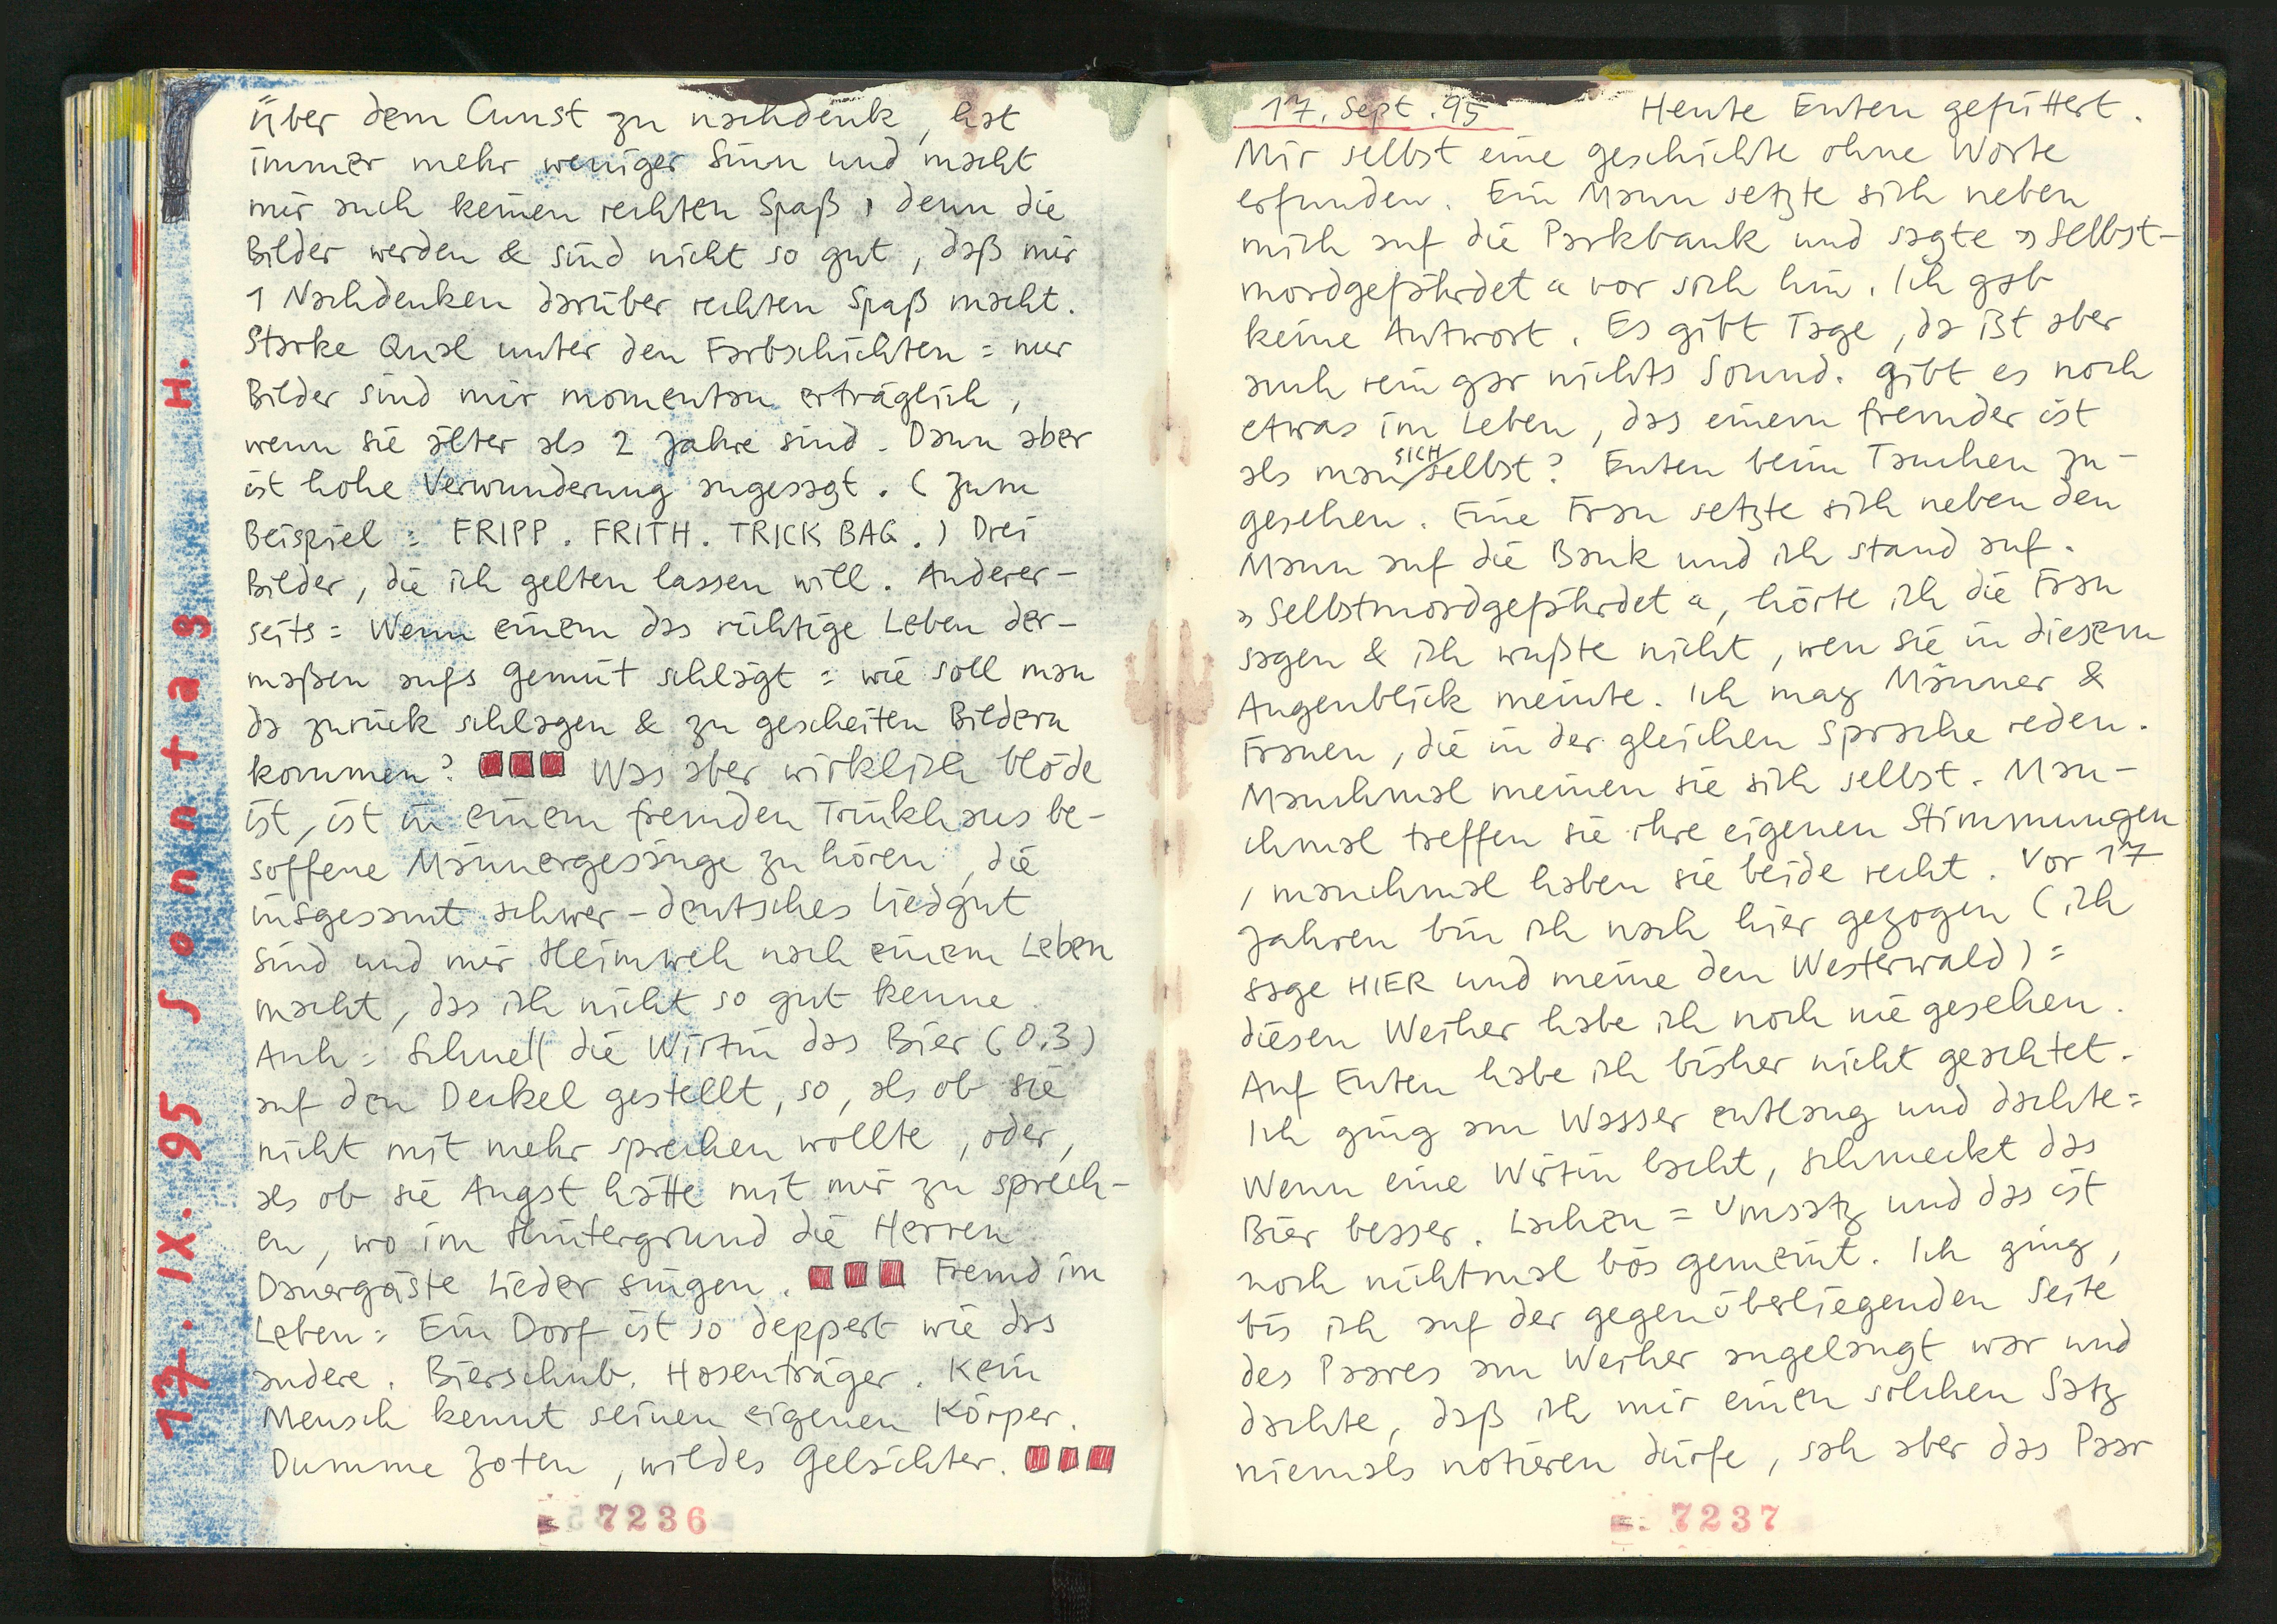 17. IX. 95 Sonntag H.
Über dem Cunst zu nachdenk, hat
immer mehr weniger Sinn und macht
mir auch keinen rechten Spaß, denn die
Bilder werden & sind nicht so gut, daß mir
1 Nachdenken darüber rechten Spaß macht.
Starke Qual unter den Farbschichten = nur
Bilder sind mir momentan erträglich,
wenn sie älter als 2 Jahre sind. Dann aber
ist hohe Verwunderung angesagt. (Zum
Beispiel = FRIPP. FRITH. TRICK BAG.) Drei
Bilder, die ich gelten lassen will. Anderer-
seits = Wenn einem das richtige Leben der-
maßen aufs Gemüt schlägt = wie soll man
da zurück schlagen & zu gescheiten Bildern
kommen? Was aber wirklich blöde
ist, ist in einem fremden Trinkhaus be-
soffene Männergesänge zu hören, die
insgesamt schwer-deutsches Liedgut
sind und mir Heimweh nach einem Leben
macht, das ich nicht so gut kenne
Auh = Schnell die Wirtin das Bier (0.3)
auf den Deckel gestellt, so, als ob sie
nicht mit mehr sprechen wollte, oder,
als ob sie Angst hätte mit mir zu sprech-
en, wo im Hintergrund die Herren
Dauergäste Lieder singen. Fremd im
Leben = Ein Dorf ist so deppert wie das
andere. Bierschub. Hosenträger. Kein
Mensch kennt seinen eigenen Körper.
Dumme Zoten, wildes Gelächter.
7236
17. Sept. 95 Heute Enten gefüttert.
Mir selbst eine Geschichte ohne Worte
erfunden. Ein Mann setzte sich neben
mich auf die Parkbank und sagte »Selbst-
mordgefährdet« vor sich hin. Ich gab
keine Antwort. Es gibt Tage, da ist aber
auch rein gar nichts Sound. Gibt es noch
etwas im Leben, das einem fremder ist
als man SICH selbst? Enten beim Tauchen zu-
gesehen. Eine Frau setzte sich neben den
Mann auf die Bank und ich stand auf.
»Selbstmordgefährdet«, hörte ich die Frau
sagen & ich wußte nicht, wen sie in diesem
Augenblick meinte. Ich mag Männer &
Frauen, die in der gleichen Sprache reden.
Manchmal meinen sie sich selbst. Man-
chmal treffen sie ihre eigenen Stimmungen
, manchmal haben sie beide recht. Vor 17
Jahren bin ich nach hier gezogen (ich
sage HIER und meine den Westerwald) =
diesen Weiher habe ich noch nie gesehen.
Auf Enten habe ich bisher nicht geachtet.
Ich ging am Wasser entlang und dachte =
Wenn eine Wirtin lacht, schmeckt das
Bier besser. Lachen = Umsatz und das ist
noch nichtmal bös gemeint. Ich ging,
bis ich auf der gegenüberliegenden Seite
des Paares am Weiher angelangt war und
dachte, daß ich mir einen solchen Satz
niemals notieren dürfe, sah aber das Paar
7237